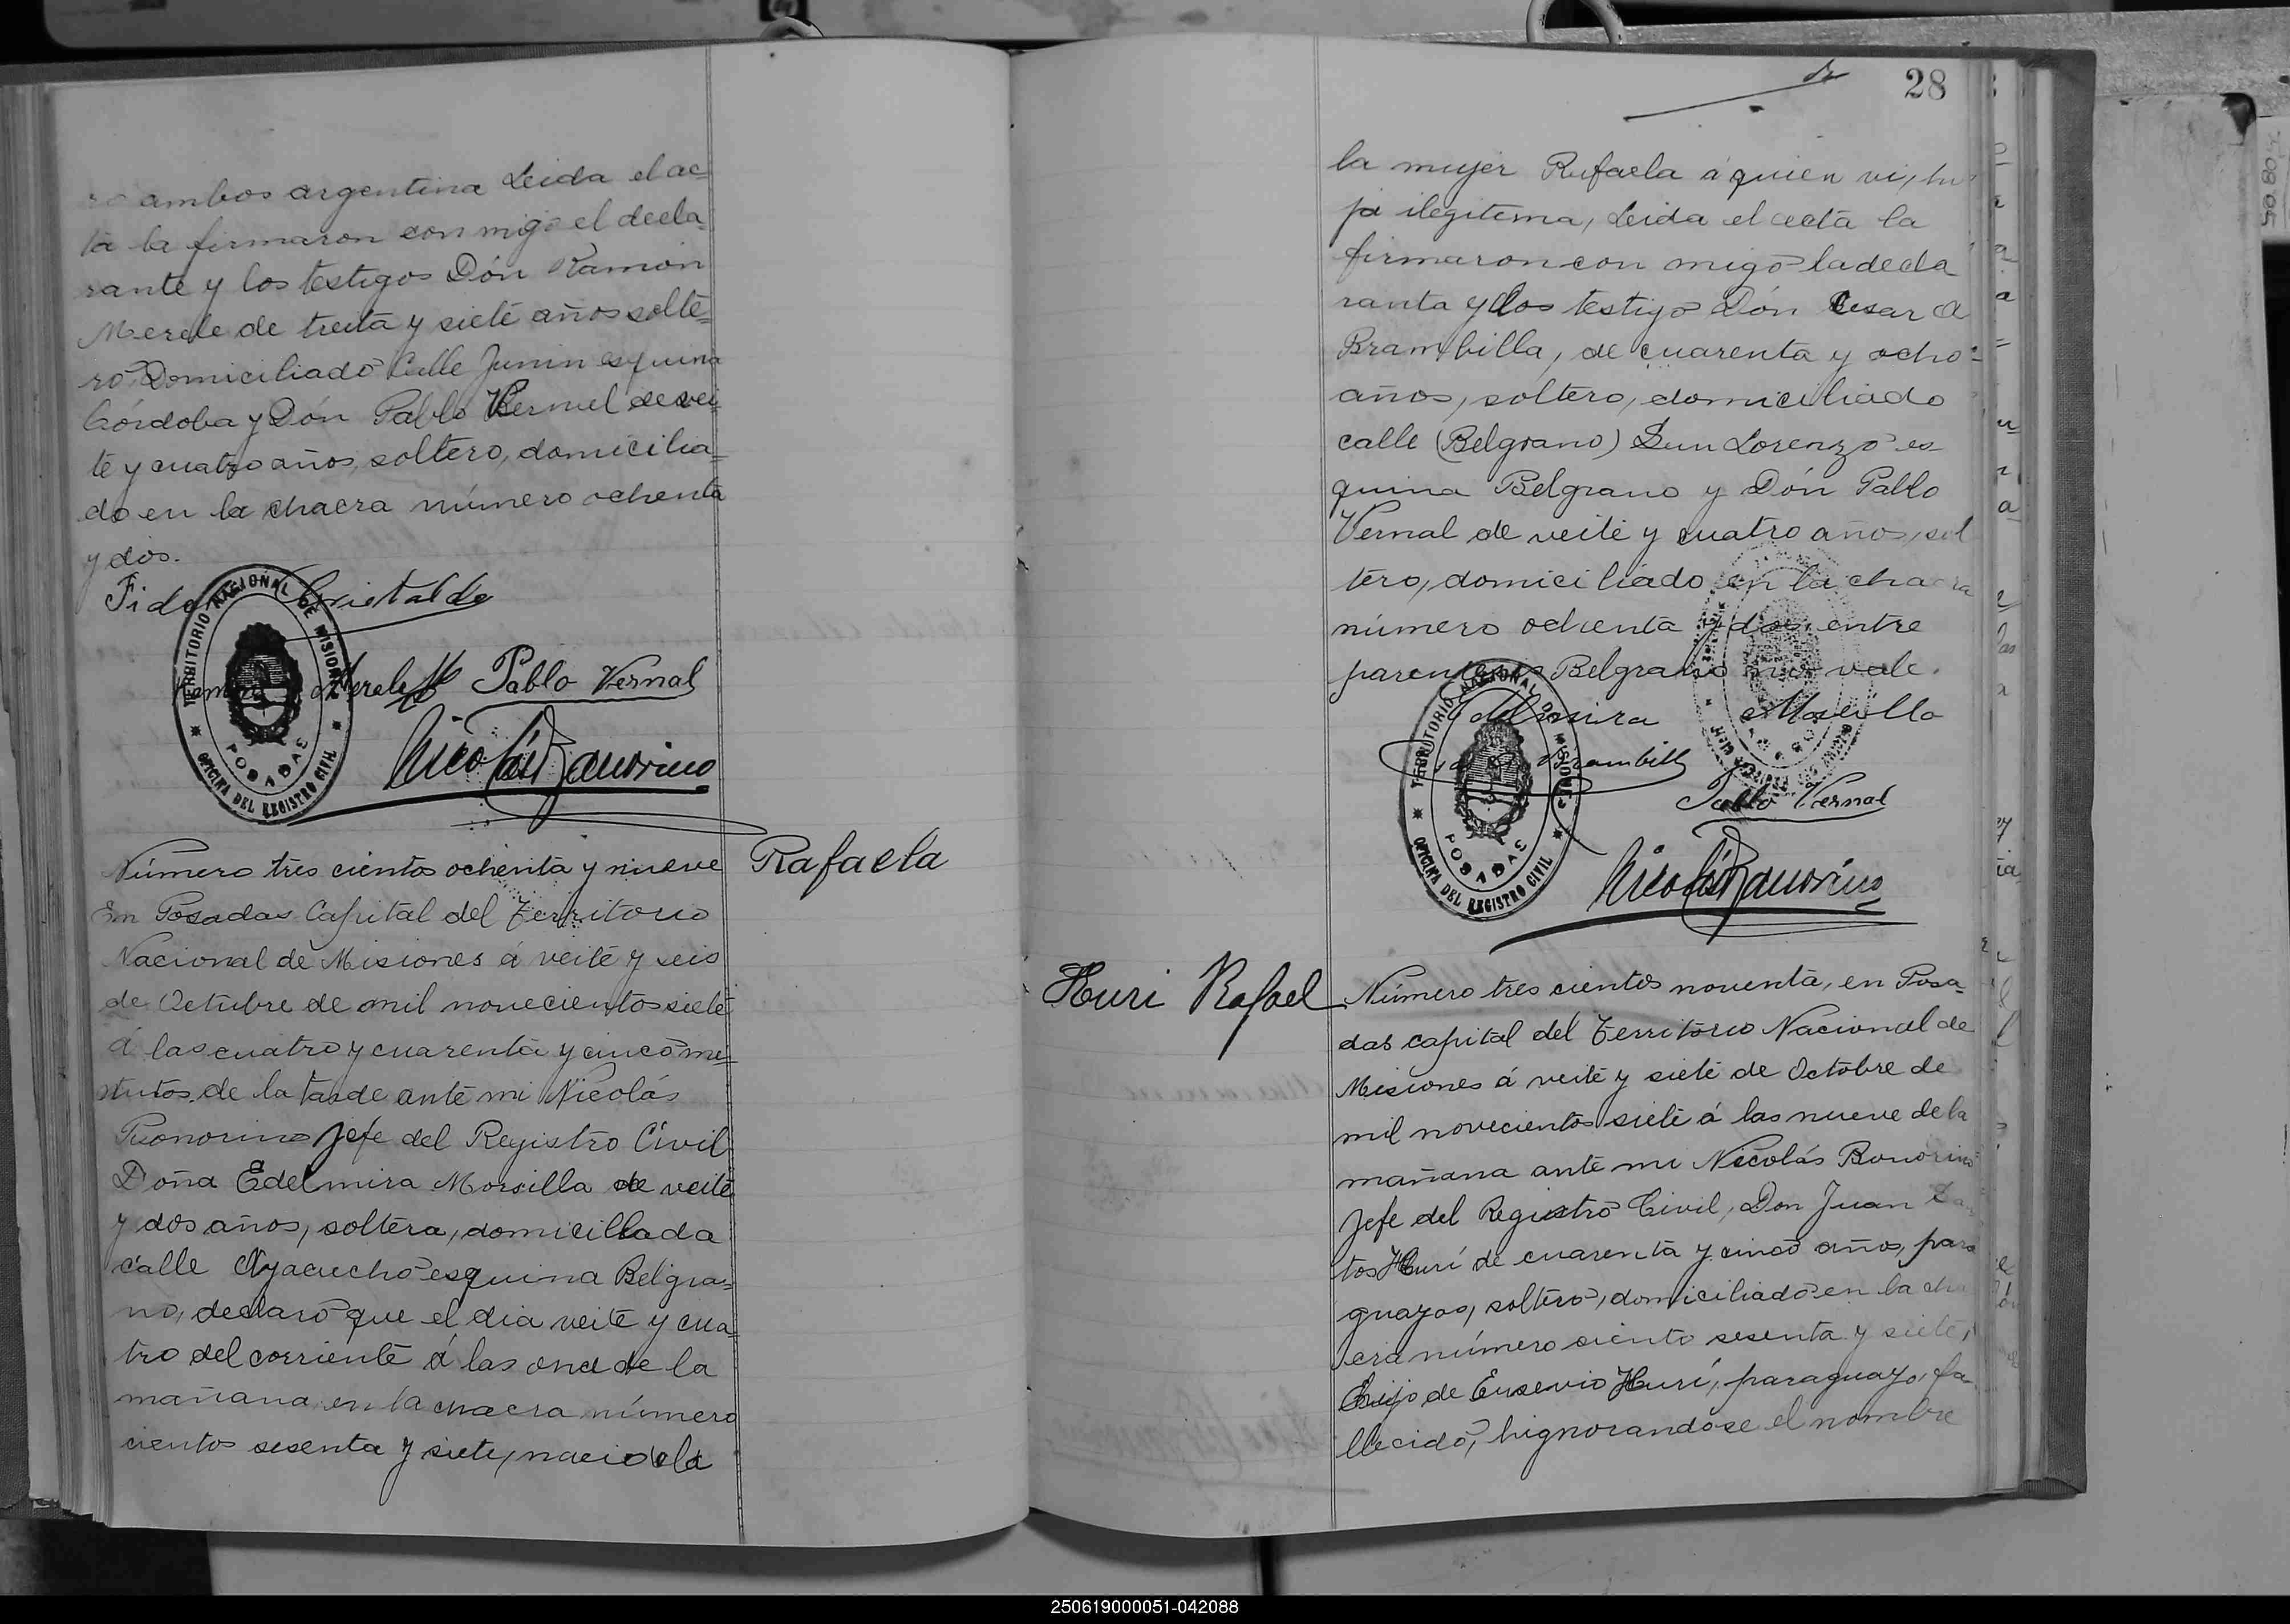 ro ambos argentina Leida el ac=
ta la firmaron con migo el decla
rante y los testigos Dón Ramón
Merele de treita y siete años solte=
ro, Domiciliado Calle Junin esquina
Córdoba y Dón Pablo Vernel de vei
te y cuatro años, soltero, domicilia=
do en la chacra número ochenta
y dos.
Fidel Cristaldo
Ramón Merele Pablo Vernal
TERRITORIO NACIONAL DE MISIONES
POSADAS
OFICINA DEL REGISTRO CIVIL
Nicolás Bonorino
Rafaela
Número tres cientos ochenta y nueve
En Posadas Capital del Territorio
Nacional de Misiones á veite y seis
de Octubre de mil novecientos siete
á las cuatro y cuarenta y cinco mi=
nutos de la tarde ante mi Nicolás
Bonorino Jefe del Registro Civil
Doña Edelmira Morsilla de veite
y dos años, soltera, domicillada
calle Ayacucho esquina Belgra=
no, declaró que el dia veite y cua=
tro del corriente á las once de la
mañana en la chacra número
cientos sesenta y siete, nació
28
la mujer Rafaela á quien vi, hi
ja ilegitema, Leida el acta la
firmaron con migo la decla
ranta y los testigo Dón Cesar A
Brambilla, de cuarenta y ocho
años, soltero, domiciliado
calle (Belgrano) San Lorenzo es=
quina Belgrano y Dón Pablo
Vernal de veite y cuatro años, sol
tero, domiciliado en la chacra
número ochenta y dos, entre
parentesis Belgrano no vale.
Edelmira Morcilla
Brambilla
Pablo Vernal
TERRITORIO NACIONAL DE MISIONES
POSADAS
OFICINA DEL REGISTRO CIVIL
Nicolás Bonorino
Huri Rafael
Número tres cientos noventa, en Posa=
das capital del Territorio Nacional de
Misiones á veite y siete de Octobre de
mil novecientos siete á las nueve de la
mañana ante mi Nicolás Bonorino
Jefe del Registro Civil, Don Juan San
tos Huri de cuarenta y cinco años, para
guayos, soltero, domiciliado en la cha
cra número siento sesenta y siete,
hijo de Eusevio Huri, paraguayo, fa
llecido, hignorandose el nombre
250619000051-042088